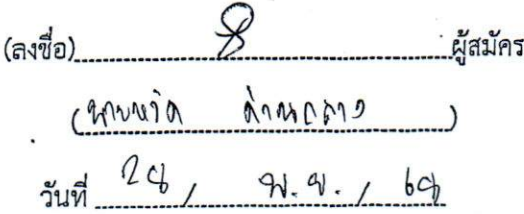 (ลงชื่อ) ผู้สมัคร
(นาย ด่านกลาง)
วันที่ 28 / พ.ย. / 68